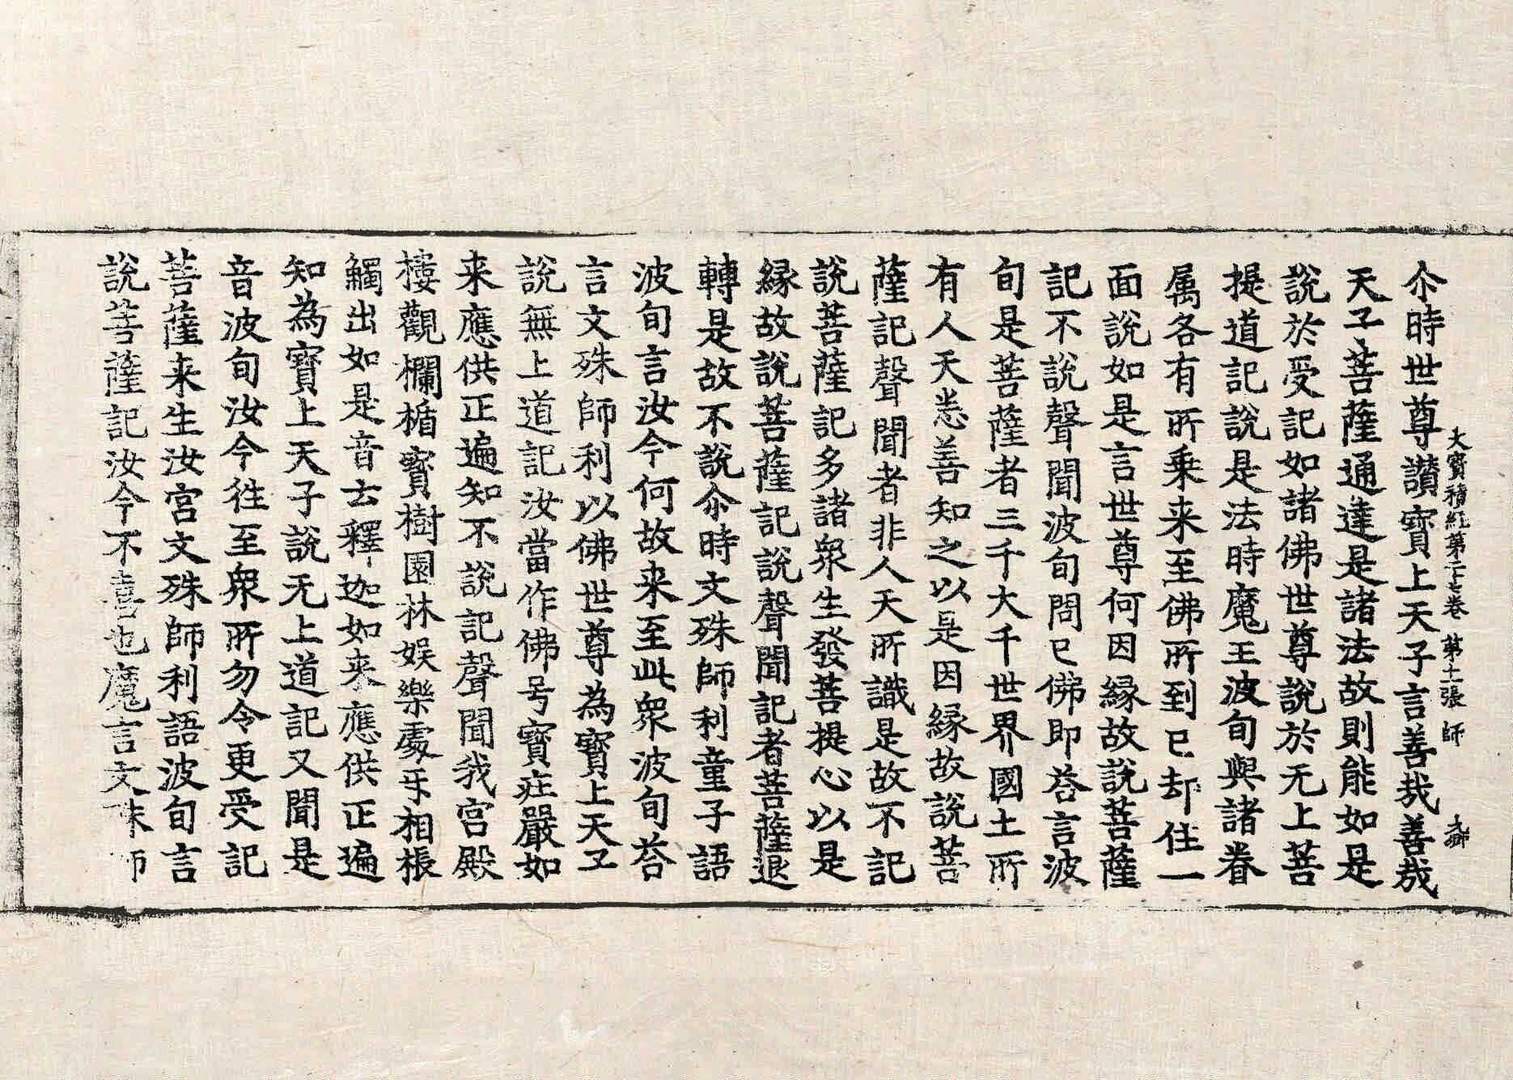 尒時世尊讃寳上天子言善㢤善㢤
大寳積経第二十七卷 第十一張 師
天子菩薩通達是諸法故則能如是
說於受記如諸佛世尊說於无上菩
提道記說是法時魔王波旬與諸眷
属各有所乗来至佛所到已却住一
面說如是言世尊何因縁故說菩薩
記不說聲聞波旬問已佛即荅言波
旬是菩薩者三千大千世界國土所
有人天悉善知之以是因縁故說菩
薩記聲聞者非人天所識是故不記
說菩薩記多諸衆生發菩提心以是
縁故說菩薩記說聲聞記者菩薩退
轉是故不說尒時文殊師利童子語
波旬言汝今何故来至此衆波旬荅
言文殊師利以佛世尊為寳上天子
說無上道記汝當作佛号寳莊嚴如
来應供正遍知不說記聲聞我宫殿
樓觀欄楯寳樹園林娱樂處手相振
觸出如是音去釋迦如来應供正遍
知為寳上天子說无上道記又聞是
音波旬汝今徃至衆所勿令更受記
菩薩来生汝宫文殊師利語波旬言
說菩薩記汝今不喜也魔言文殊師